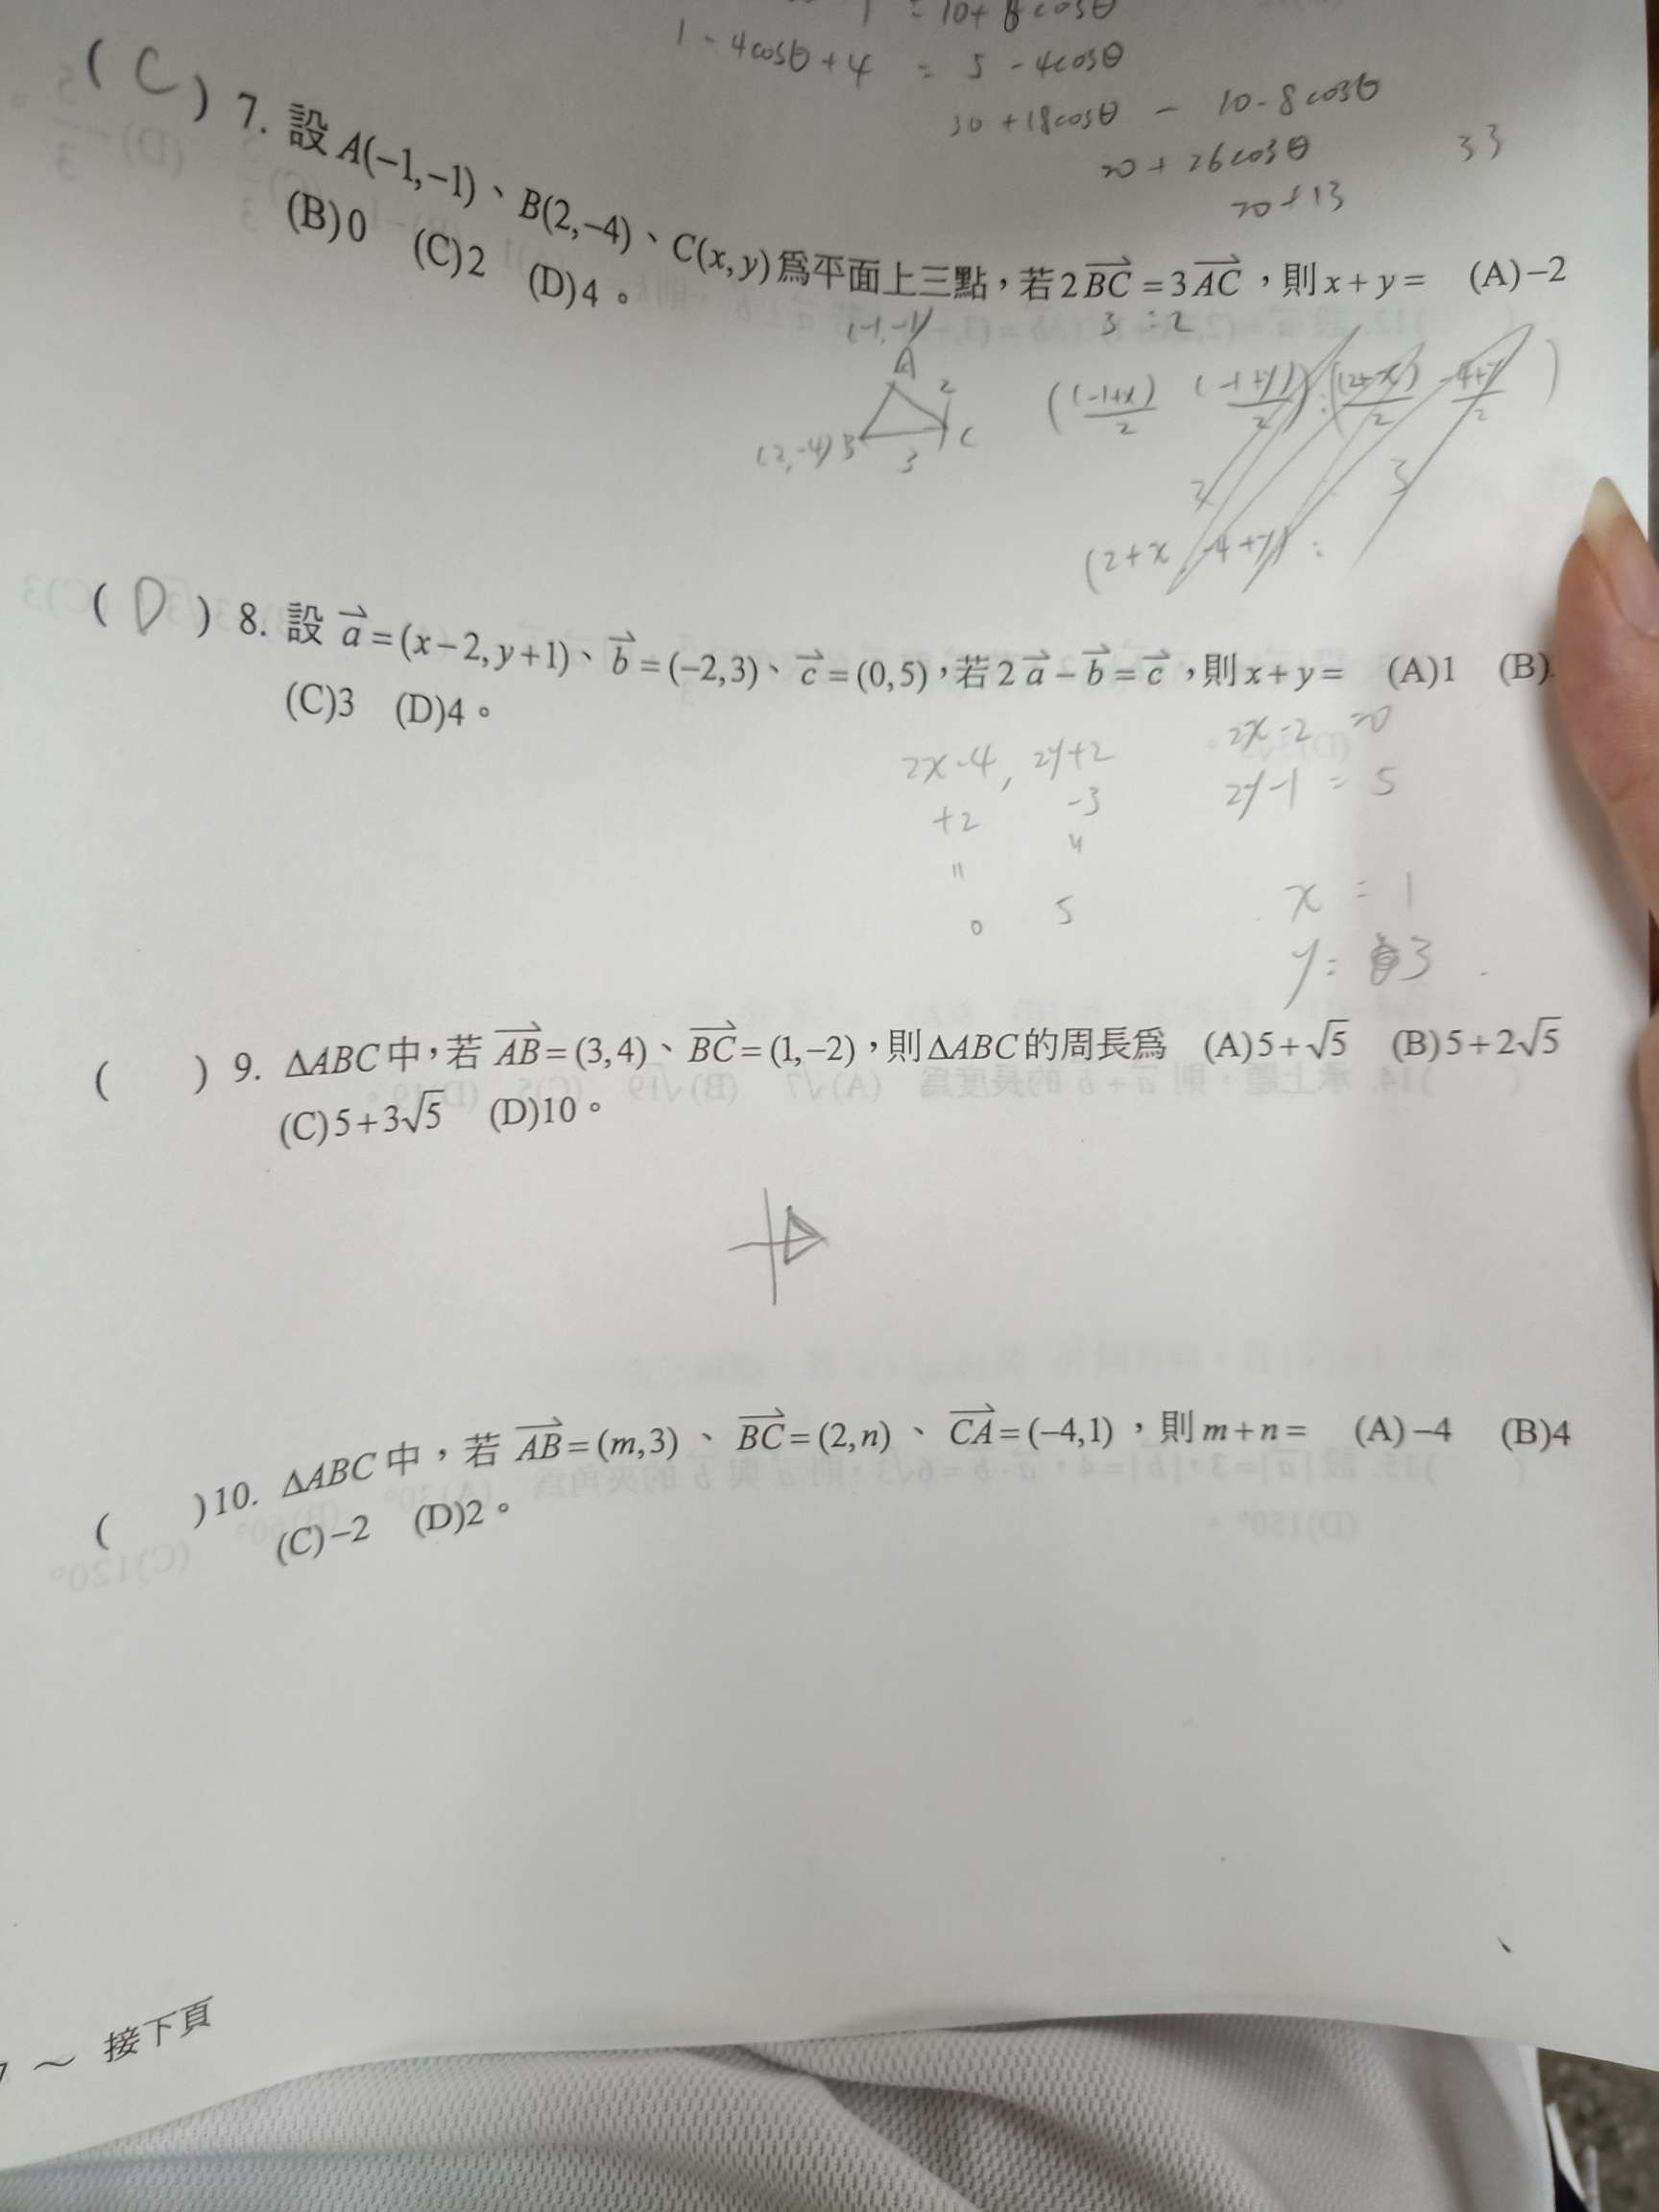 1 = 10+8cosθ
1-4cosθ+4 = 5-4cosθ
30+18cosθ - 10-8cosθ
20+26cosθ 33
20+13
( C ) 7. 設 A(−1,−1)、B(2,−4)、C(x,y)爲平面上三點，若2BC=3AC，則x+y= (A)−2
(B)0 (C)2 (D)4。
(-1,-1) 3:2
A 2 ((-1+x)/2 (-1+y)/2):((2+x)/2 -4+y/2)
(2,-4) B 3 C
2 3
(2+x, -4+y):
( D ) 8. 設 a=(x−2,y+1)、b=(−2,3)、c=(0,5)，若2a−b=c，則x+y= (A)1 (B)
(C)3 (D)4。
2x-4, 2y+2 2x-2 =0
+2 -3 2y-1 = 5
=
0 5
x = 1
y = 3
( ) 9. ΔABC中，若 AB=(3,4)、BC=(1,−2)，則ΔABC的周長爲 (A)5+√5 (B)5+2√5
(C)5+3√5 (D)10。
( )10. ΔABC中，若 AB=(m,3)、BC=(2,n)、CA=(−4,1)，則m+n= (A)−4 (B)4
(C)−2 (D)2。
～ 接下頁